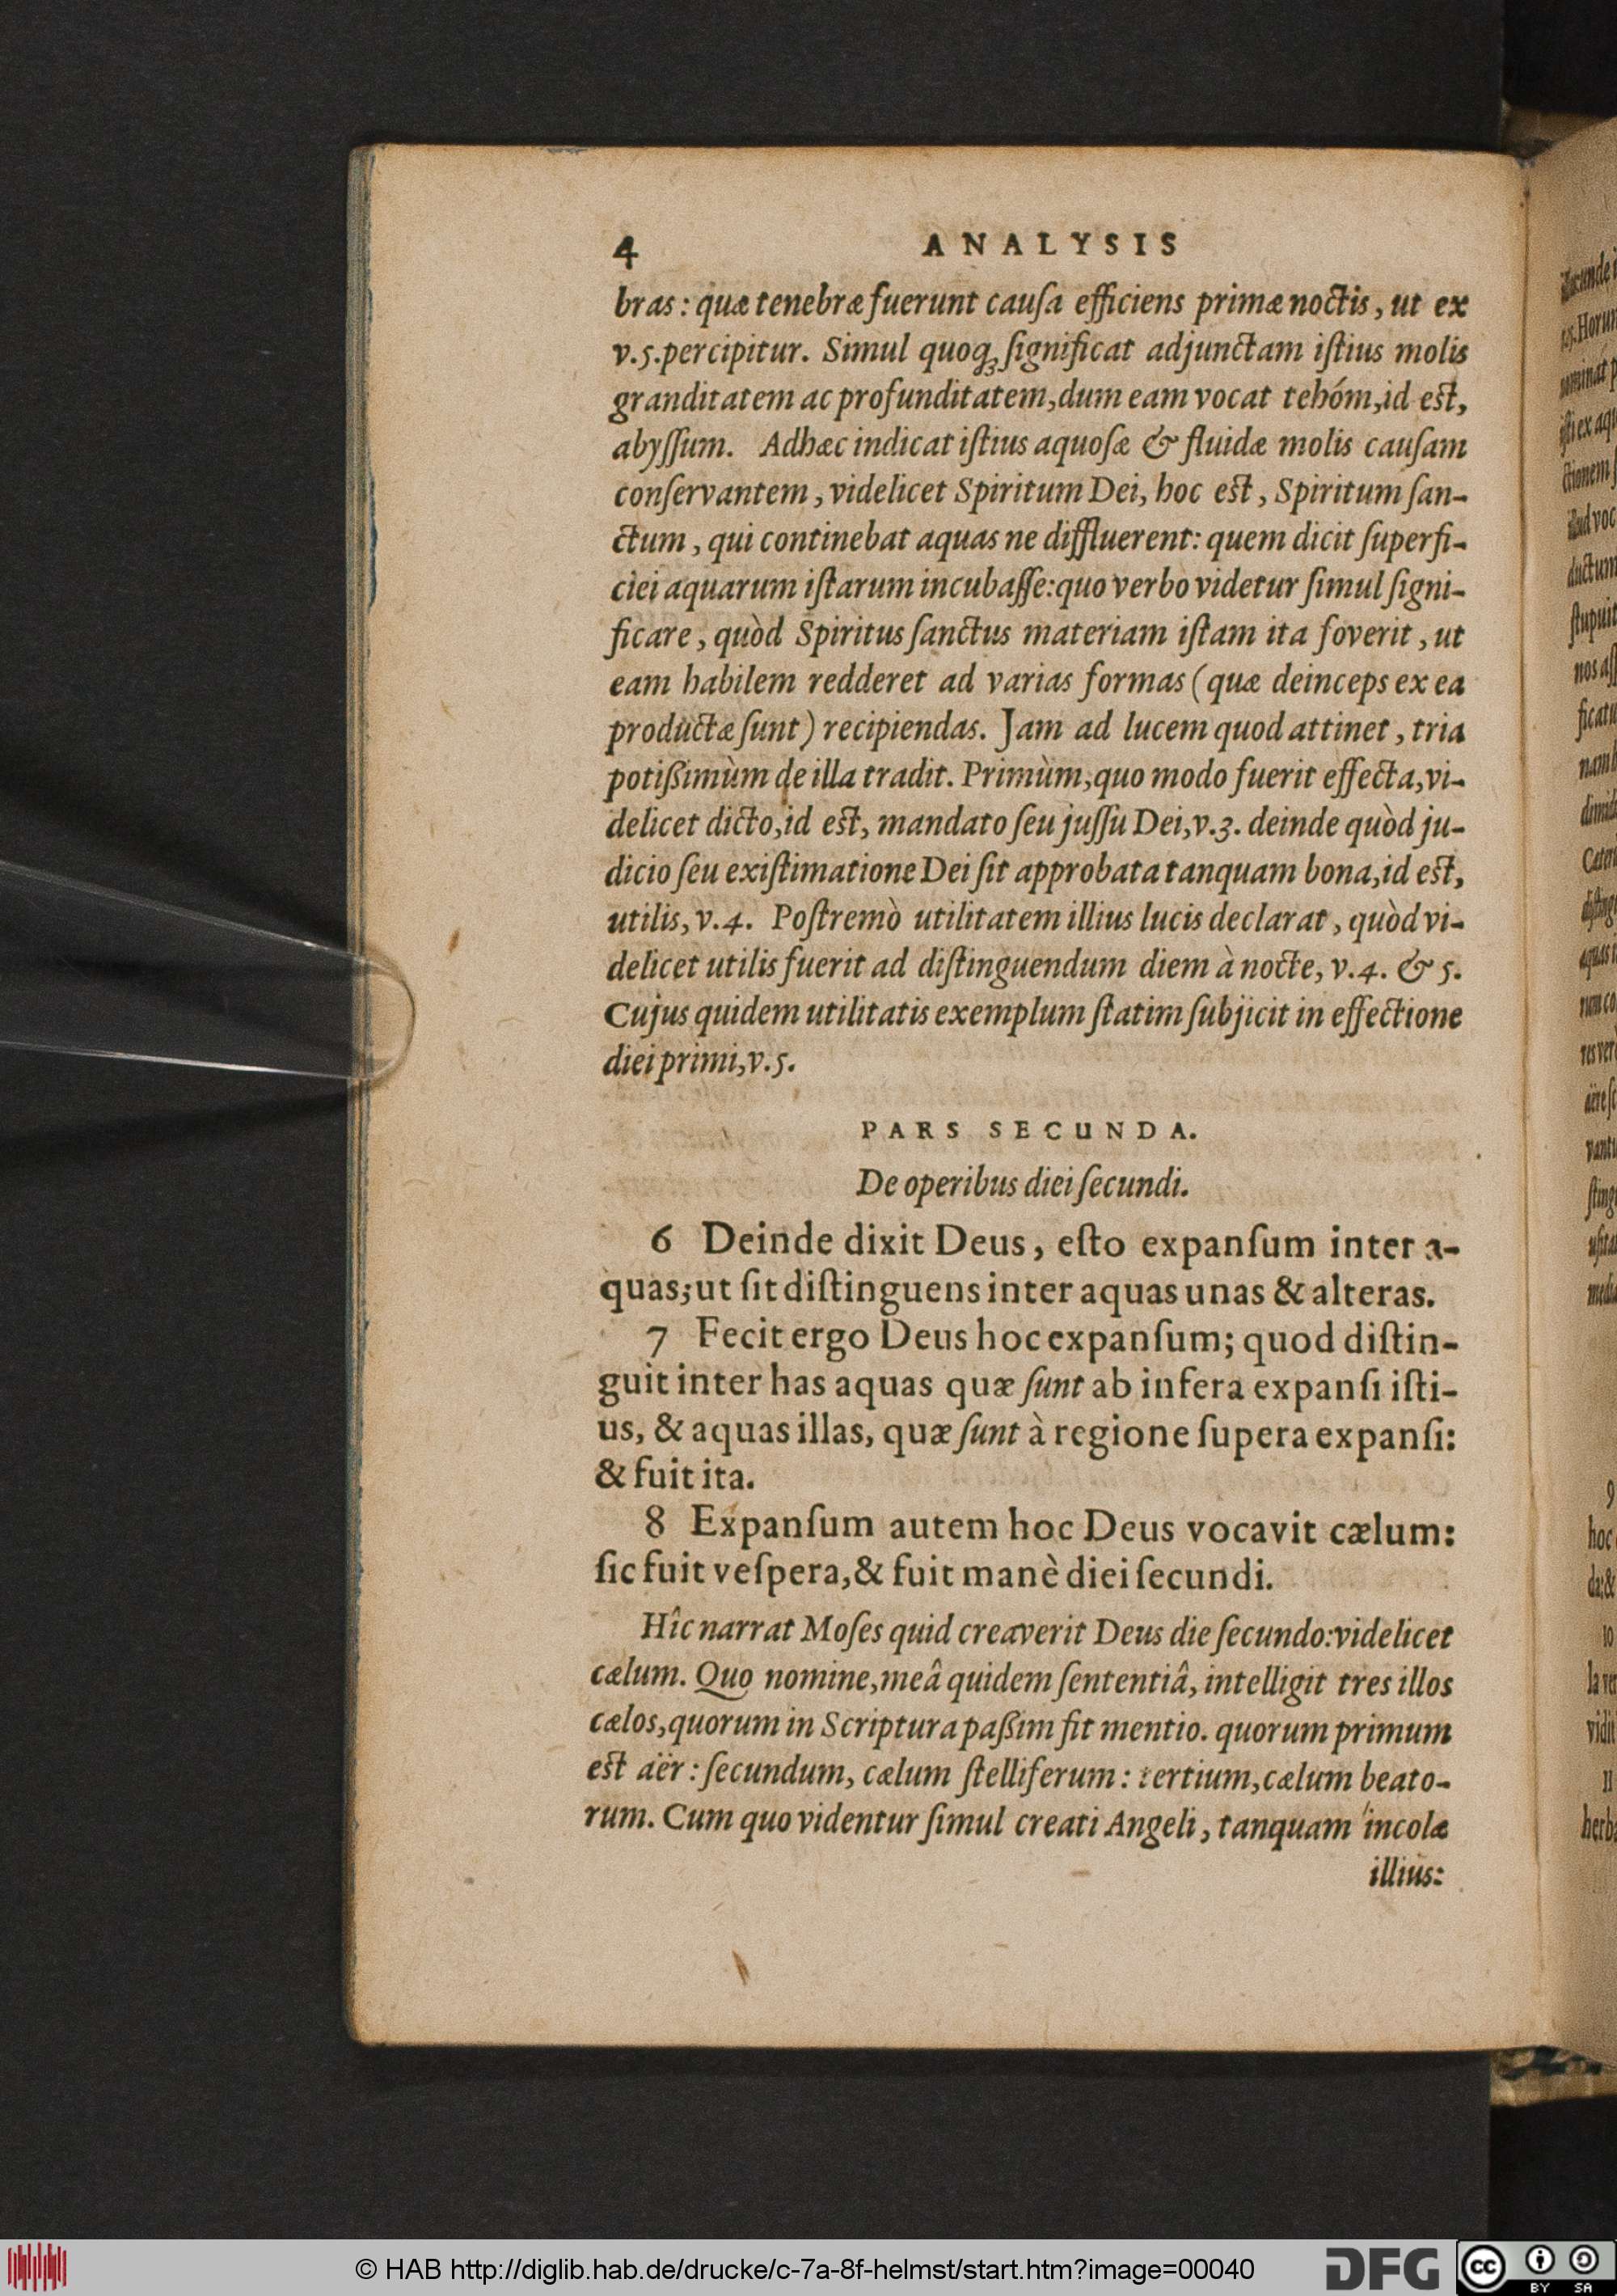 4 ANALYSIS
bras: quæ tenebræ fuerunt cauſa efficiens primæ noctis, ut ex
v.5. percipitur. Simul quoq; ſignificat adjunctam iſtius molis
granditatem ac profunditatem, dum eam vocat tehóm, id eſt,
abyſſum. Adhæc indicat iſtius aquoſæ & fluidæ molis cauſam
conſervantem, videlicet Spiritum Dei, hoc eſt, Spiritum ſan-
ctum, qui continebat aquas ne diffluerent: quem dicit ſuperfi-
ciei aquarum iſtarum incubaſſe: quo verbo videtur ſimul ſigni-
ficare, quòd Spiritus ſanctus materiam iſtam ita foverit, ut
eam habilem redderet ad varias formas (quæ deinceps ex ea
productæ ſunt) recipiendas. Jam ad lucem quod attinet, tria
potißimùm de illa tradit. Primùm, quo modo fuerit effecta, vi-
delicet dicto, id eſt, mandato ſeu juſſu Dei, v.3. deinde quòd ju-
dicio ſeu exiſtimatione Dei ſit approbata tanquam bona, id eſt,
utilis, v.4. Poſtremò utilitatem illius lucis declarat, quòd vi-
delicet utilis fuerit ad diſtinguendum diem à nocte, v.4. & 5.
Cujus quidem utilitatis exemplum ſtatim ſubjicit in effectione
diei primi, v.5.
PARS SECUNDA.
De operibus diei ſecundi.
6 Deinde dixit Deus, eſto expanſum inter a-
quas; ut ſit diſtinguens inter aquas unas & alteras.
7 Fecit ergo Deus hoc expanſum; quod diſtin-
guit inter has aquas quæ ſunt ab infera expanſi iſti-
us, & aquas illas, quæ ſunt à regione ſupera expanſi:
& fuit ita.
8 Expanſum autem hoc Deus vocavit cælum:
ſic fuit veſpera, & fuit manè diei ſecundi.
Hîc narrat Moſes quid creaverit Deus die ſecundo: videlicet
cælum. Quo nomine, meâ quidem ſententiâ, intelligit tres illos
cælos, quorum in Scriptura paßim fit mentio. quorum primum
eſt aër: ſecundum, cælum ſtelliferum: tertium, cælum beato-
rum. Cum quo videntur ſimul creati Angeli, tanquam incolæ
illius:
© HAB http://diglib.hab.de/drucke/c-7a-8f-helmst/start.htm?image=00040
DFG
cc BY SA